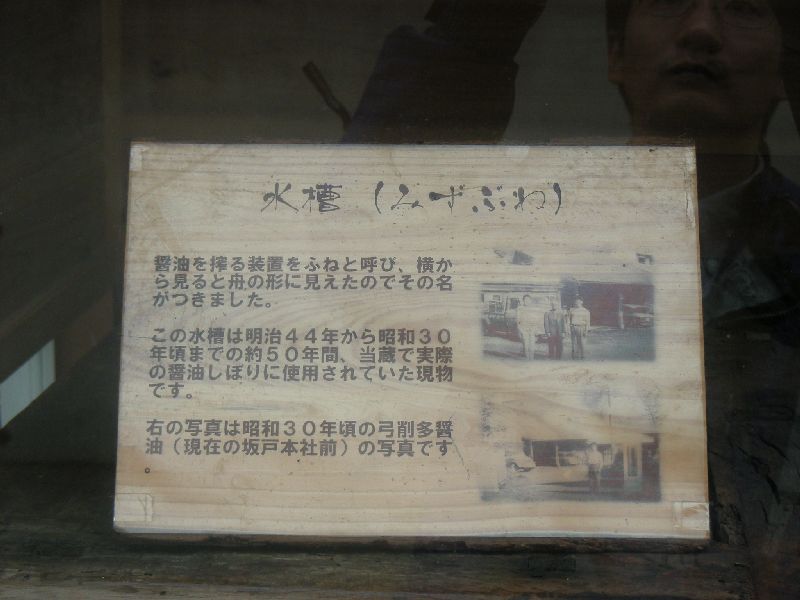 水槽（みずぶね）
醤油を搾る装置をふねと呼び、横か
ら見ると舟の形に見えたのでその名
がつきました。
この水槽は明治４４年から昭和３０
年頃までの約５０年間、当蔵で実際
の醤油しぼりに使用されていた現物
です。
右の写真は昭和３０年頃の弓削多醤
油（現在の坂戸本社前）の写真です
。